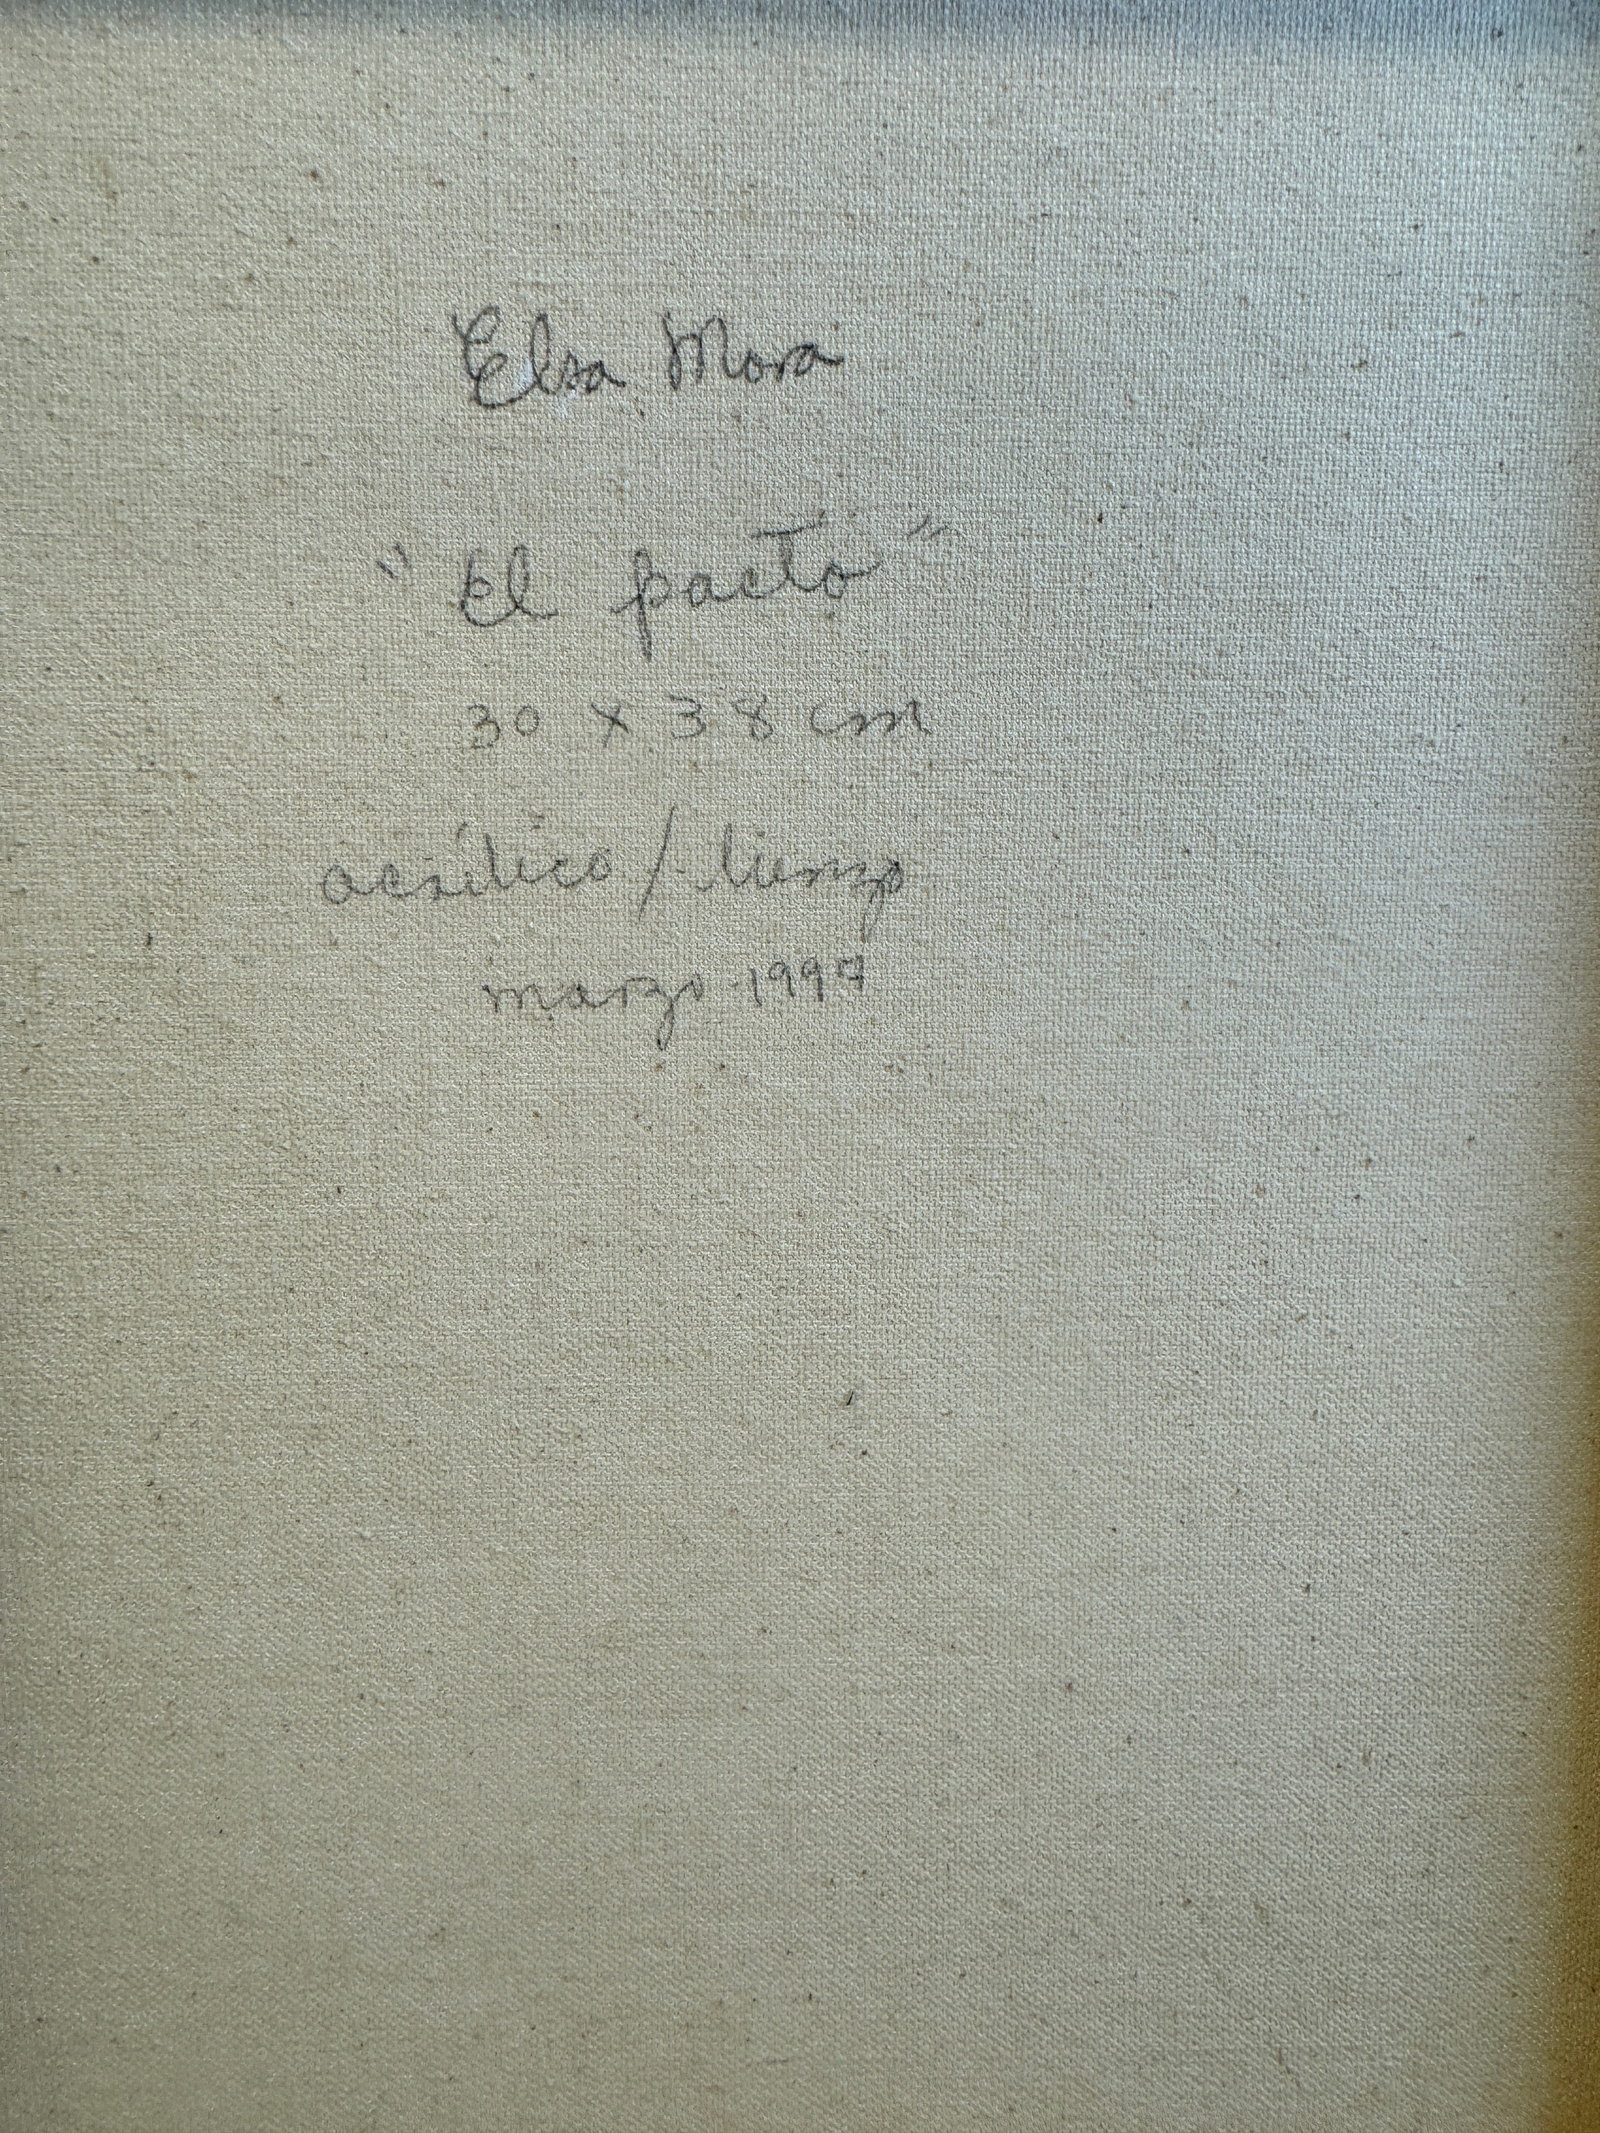 Elsa Mora
"El pacto"
30 x 38 cm
acrílico / lienzo
marzo 1997